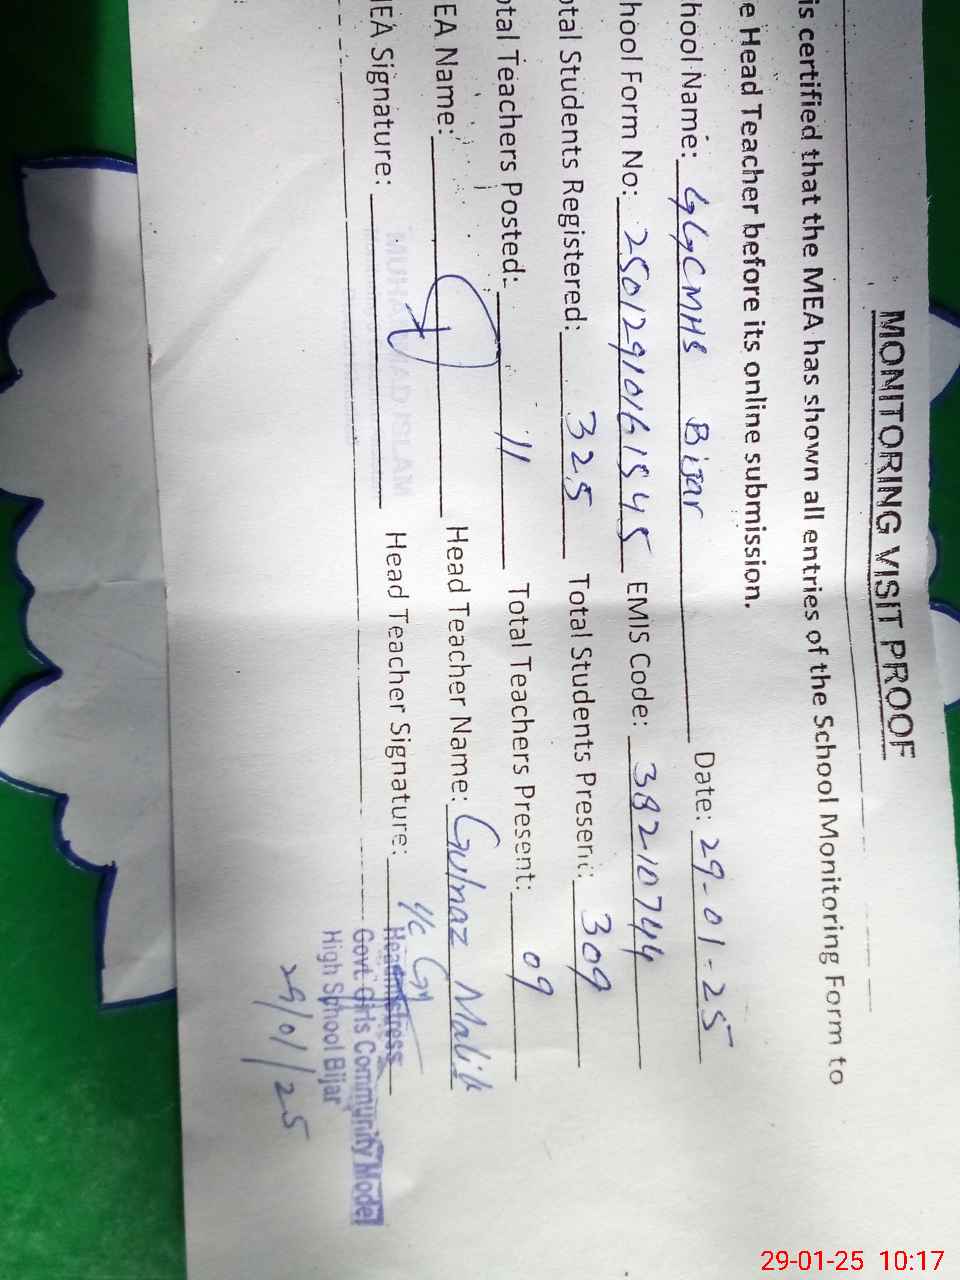 MONITORING VISIT PROOF
is certified that the MEA has shown all entries of the School Monitoring Form to
e Head Teacher before its online submission.
hool Name: GGCMHS Bijar Date: 29-01-25
hool Form No: 25012910161545 EMIS Code: 38210744
otal Students Registered: 325 Total Students Present: 309
otal Teachers Posted: 11 Total Teachers Present: 09
EA Name: Head Teacher Name: Gulnaz Malik
MEA Signature: Head Teacher Signature: I/c
MUHAMMAD ISLAM
Headmistress
Govt. Girls Community Model
High School Bijar
29/01/25
29-01-25 10:17